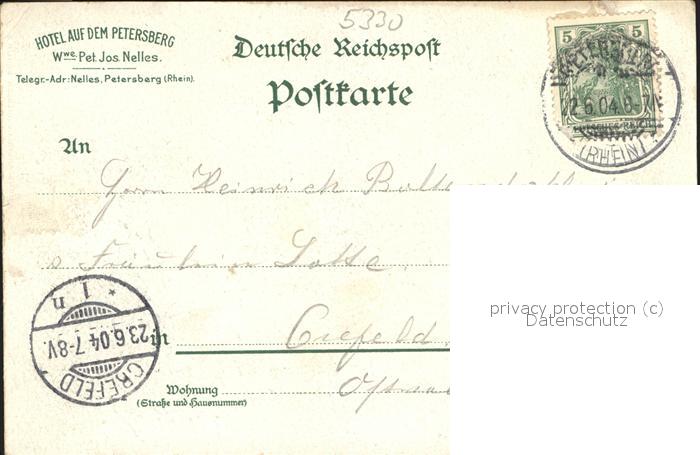 5330
HOTEL AUF DEM PETERSBERG
Wwe. Pet. Jos. Nelles.
Telegr.-Adr: Nelles, Petersberg (Rhein).
Deutsche Reichspost
Postkarte
5 5
DEUTSCHES REICH
(RHEIN)
An
Herrn Heinrich
Fräulein Lotte
in Crefeld
Wohnung
(Straße und Hausnummer)
* 1 n
23.6.04.7-8V.
CREFELD
privacy protection (c)
Datenschutz